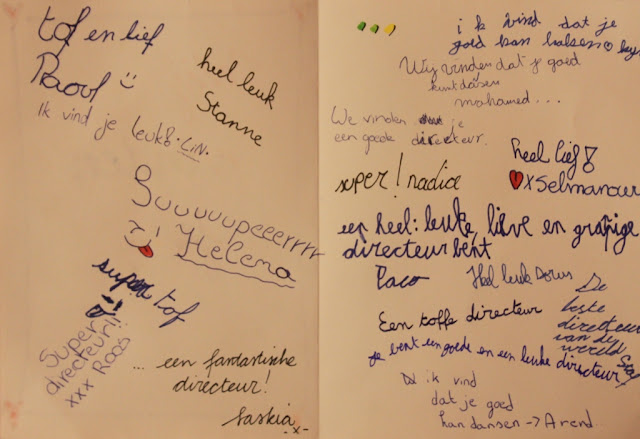 tof en lief
Raoul
heel leuk
Stanne
Ik vind je leuk! . LIN.
Suuuuupeeerrrr
Helena
super tof
Super
directeur!!
xxx Roos
... een fantastische
directeur!
Saskia x-
ik vind dat je
goed kan
Wij vinden dat j goed
kunt dansen
mohamed...
We vinden je
een goede directeur.
heel lief!
super! nadia
x Selmanour
een heel: leuke, lieve en grapige
directeur bent
Paco
Heel leuk Dorus
De
beste
directeur
van de
wereld
Een toffe directeur
Je bent een goede en een leuke directeur
ik vind
dat je goed
kan dansen -> Arend..